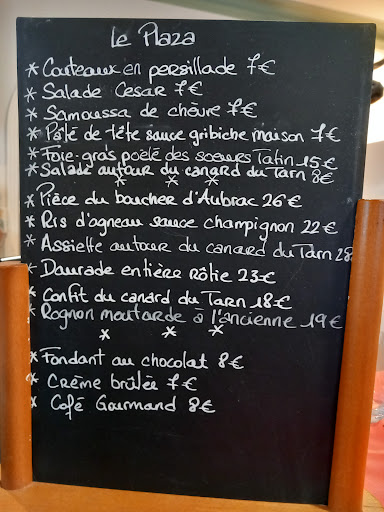 Le Plaza
* Couteaux en persillade 7€
* Salade Cesar 7€
* Samoussa de chèvre 7€
* Pâté de tête sauce gribiche maison 7€
* Foie-gras poêlé des soeurs Tatin 15€
* Salade autour du canard du Tarn 8€
* * *
* Pièce du boucher d'Aubrac 26€
* Ris d'agneau sauce champignon 22€
* Assiette autour du canard du Tarn 28
* Daurade entière rôtie 23€
* Confit du canard du Tarn 18€
* Rognon moutarde à l'ancienne 19€
* * *
* Fondant au chocolat 8€
* Crème brûlée 7€
* Café Gourmand 8€